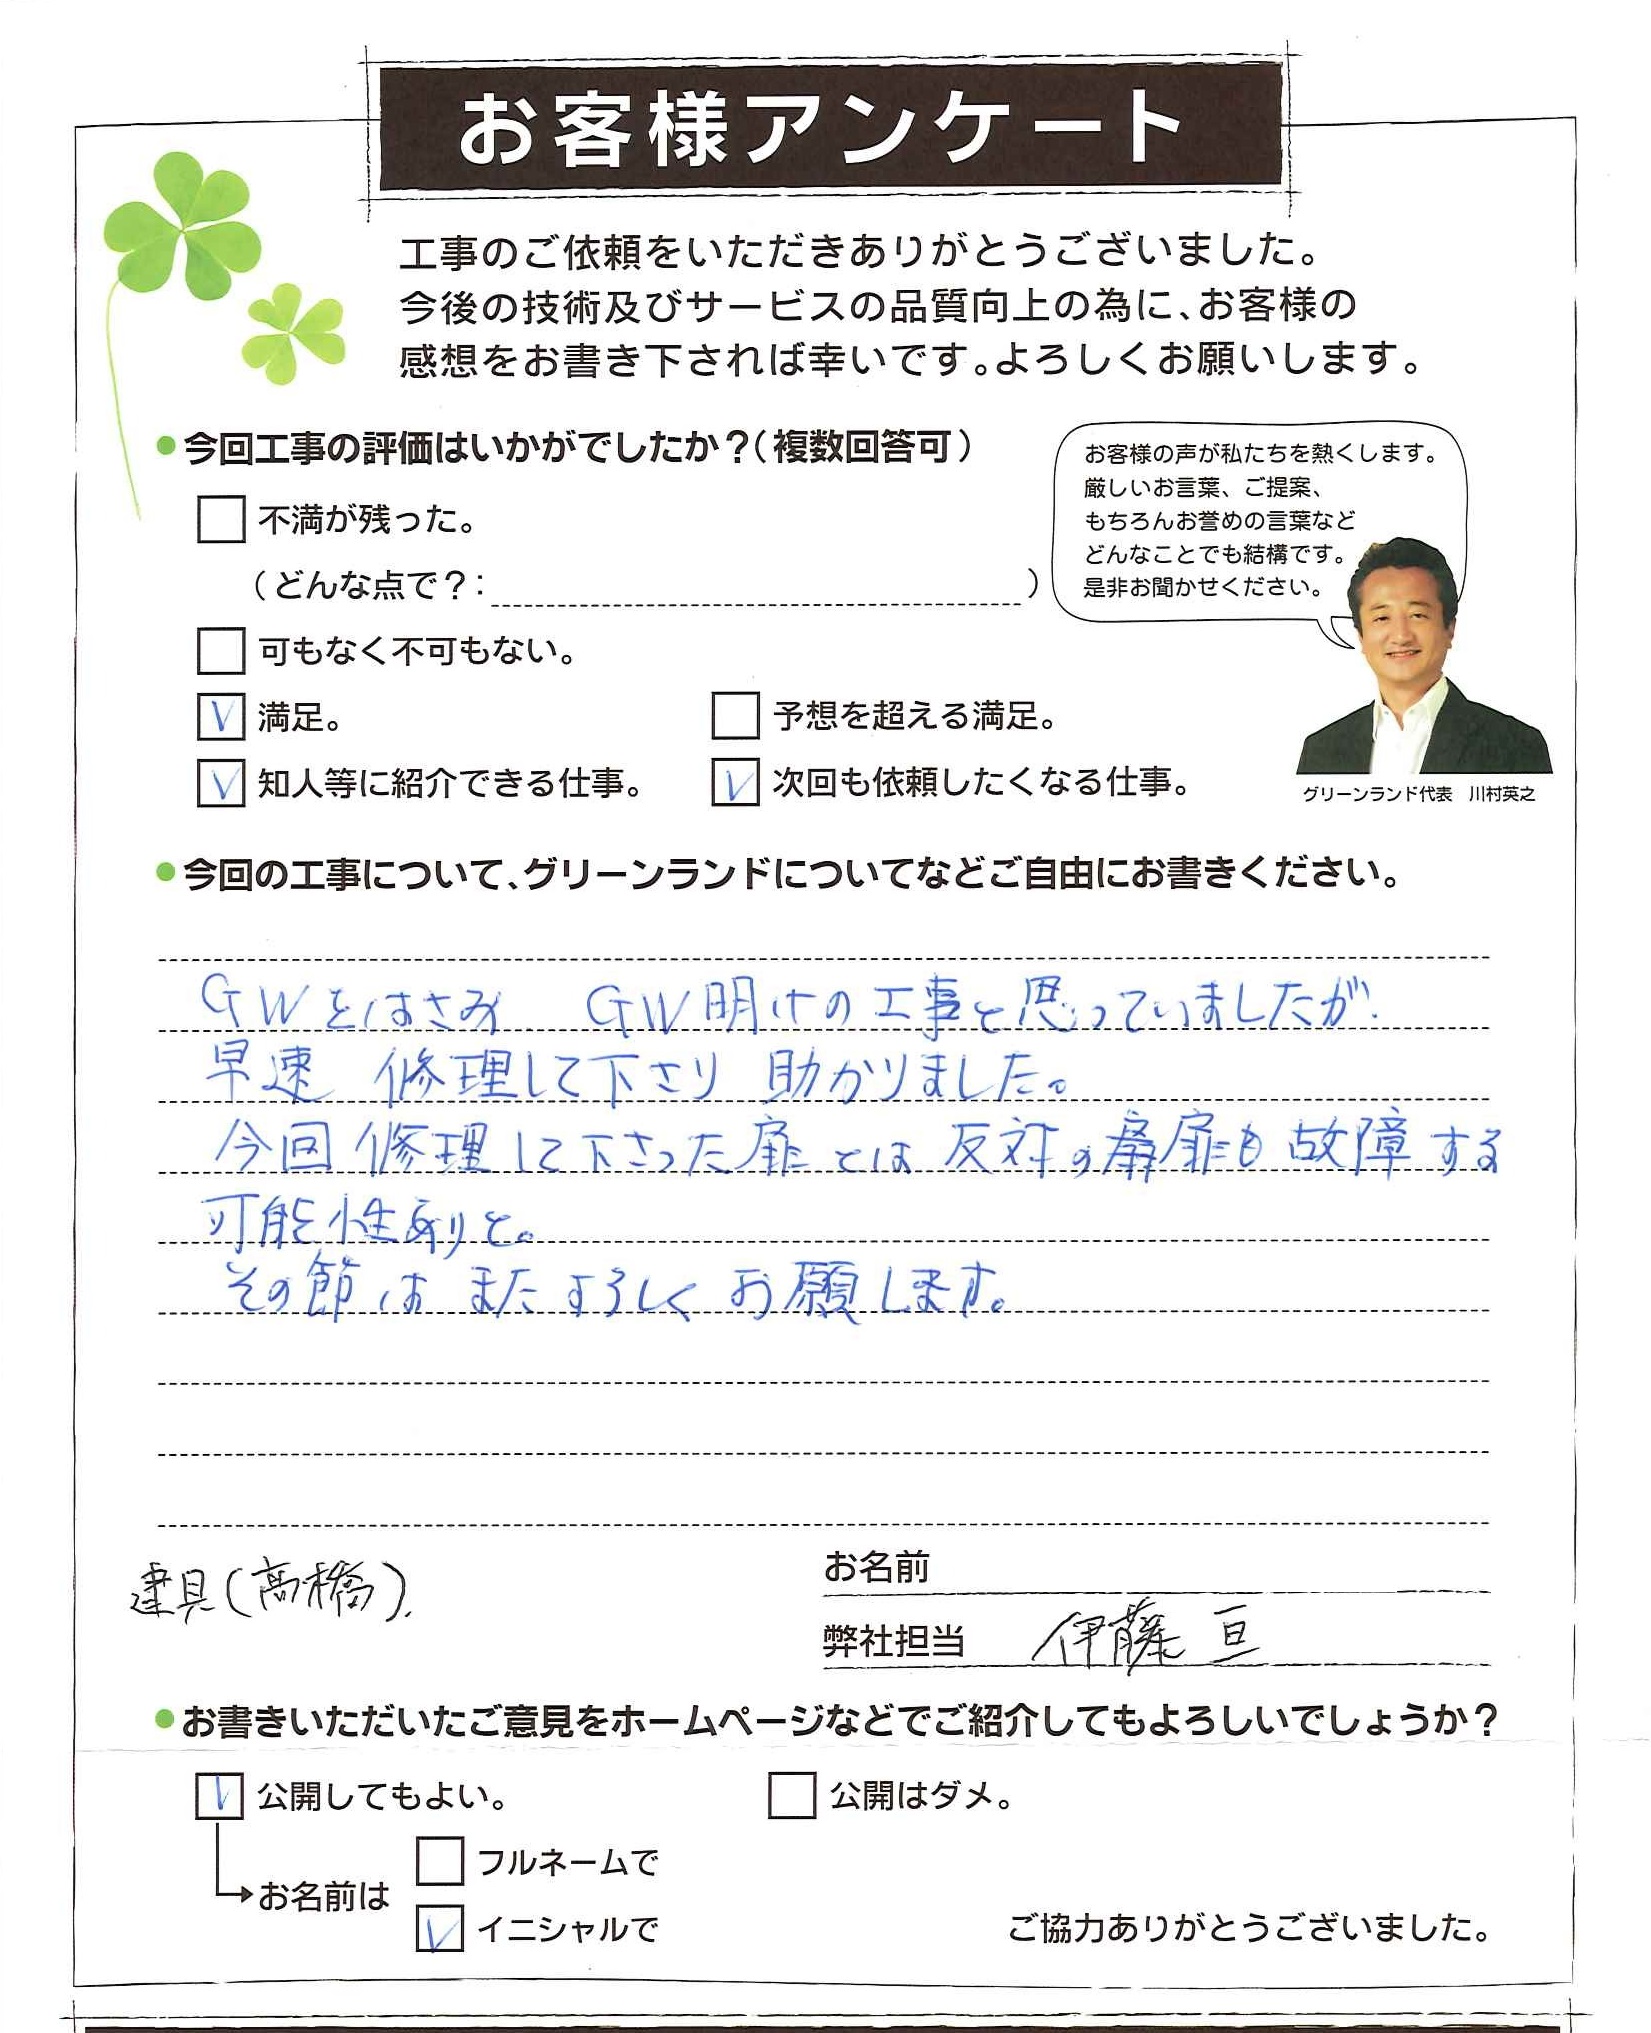 お客様アンケート
工事のご依頼をいただきありがとうございました。
今後の技術及びサービスの品質向上の為に、お客様の
感想をお書き下されば幸いです。よろしくお願いします。
今回工事の評価はいかがでしたか？（複数回答可）
不満が残った。
（どんな点で？：　）
可もなく不可もない。
満足。
予想を超える満足。
知人等に紹介できる仕事。
次回も依頼したくなる仕事。
お客様の声が私たちを熱くします。
厳しいお言葉、ご提案、
もちろんお誉めの言葉など
どんなことでも結構です。
是非お聞かせください。
グリーンランド代表　川村英之
今回の工事について、グリーンランドについてなどご自由にお書きください。
GWをはさみ　GW明けの工事と思っていましたが
早速　修理して下さり　助かりました。
今回　修理して下さった扉とは　反対の扉も故障する
可能性ありと。
その節は　また　よろしく　お願します。
建具（高橋）
お名前
弊社担当　伊藤 亘
お書きいただいたご意見をホームページなどでご紹介してもよろしいでしょうか？
公開してもよい。
公開はダメ。
お名前は
フルネームで
イニシャルで
ご協力ありがとうございました。